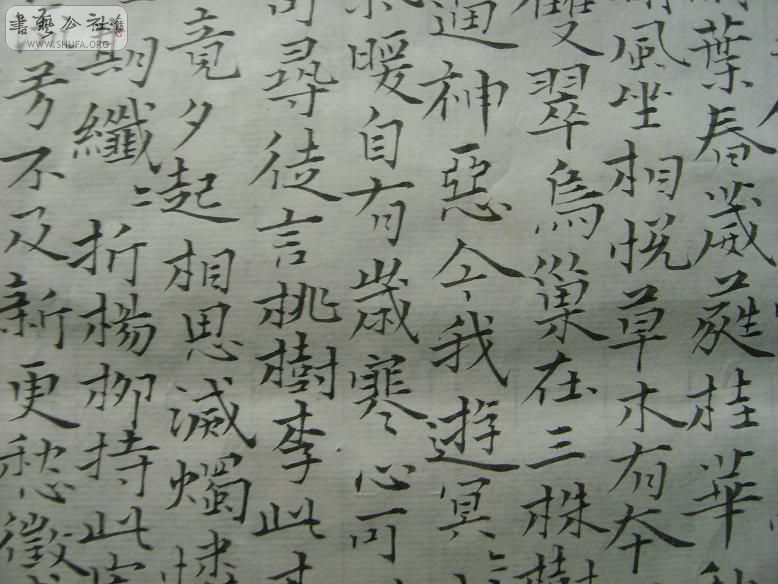 書藝公社
WWW.SHUFA.ORG
葉春葳蕤桂華秋
風坐相悅草木有本
雙翠鳥巢在三株樹
逼神惡今我遊冥
暖自有歲寒心可
尋徒言桃樹李此
竟夕起相思滅燭憐
期纖〻折楊柳持此寄
芳不及新更愁徵